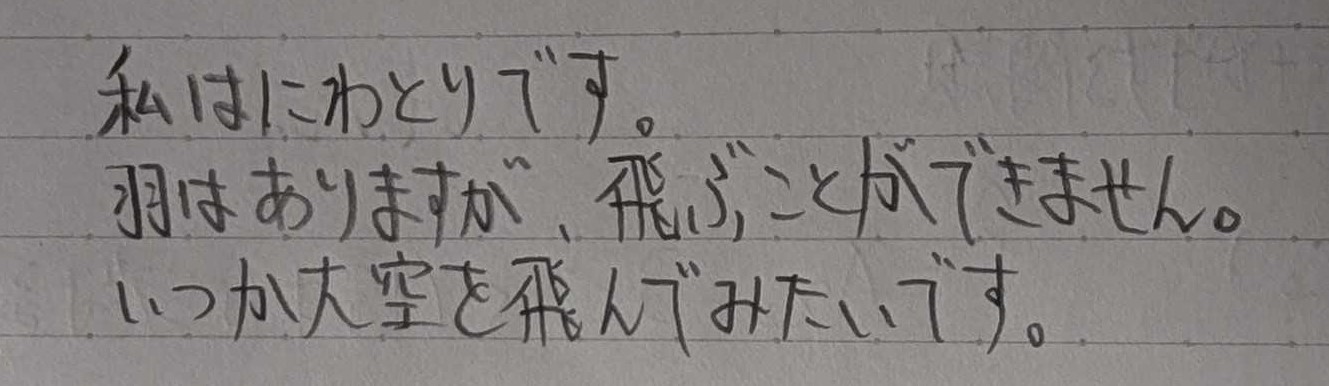 私はにわとりです。
羽はありますが、飛ぶことができません。
いつか大空を飛んでみたいです。